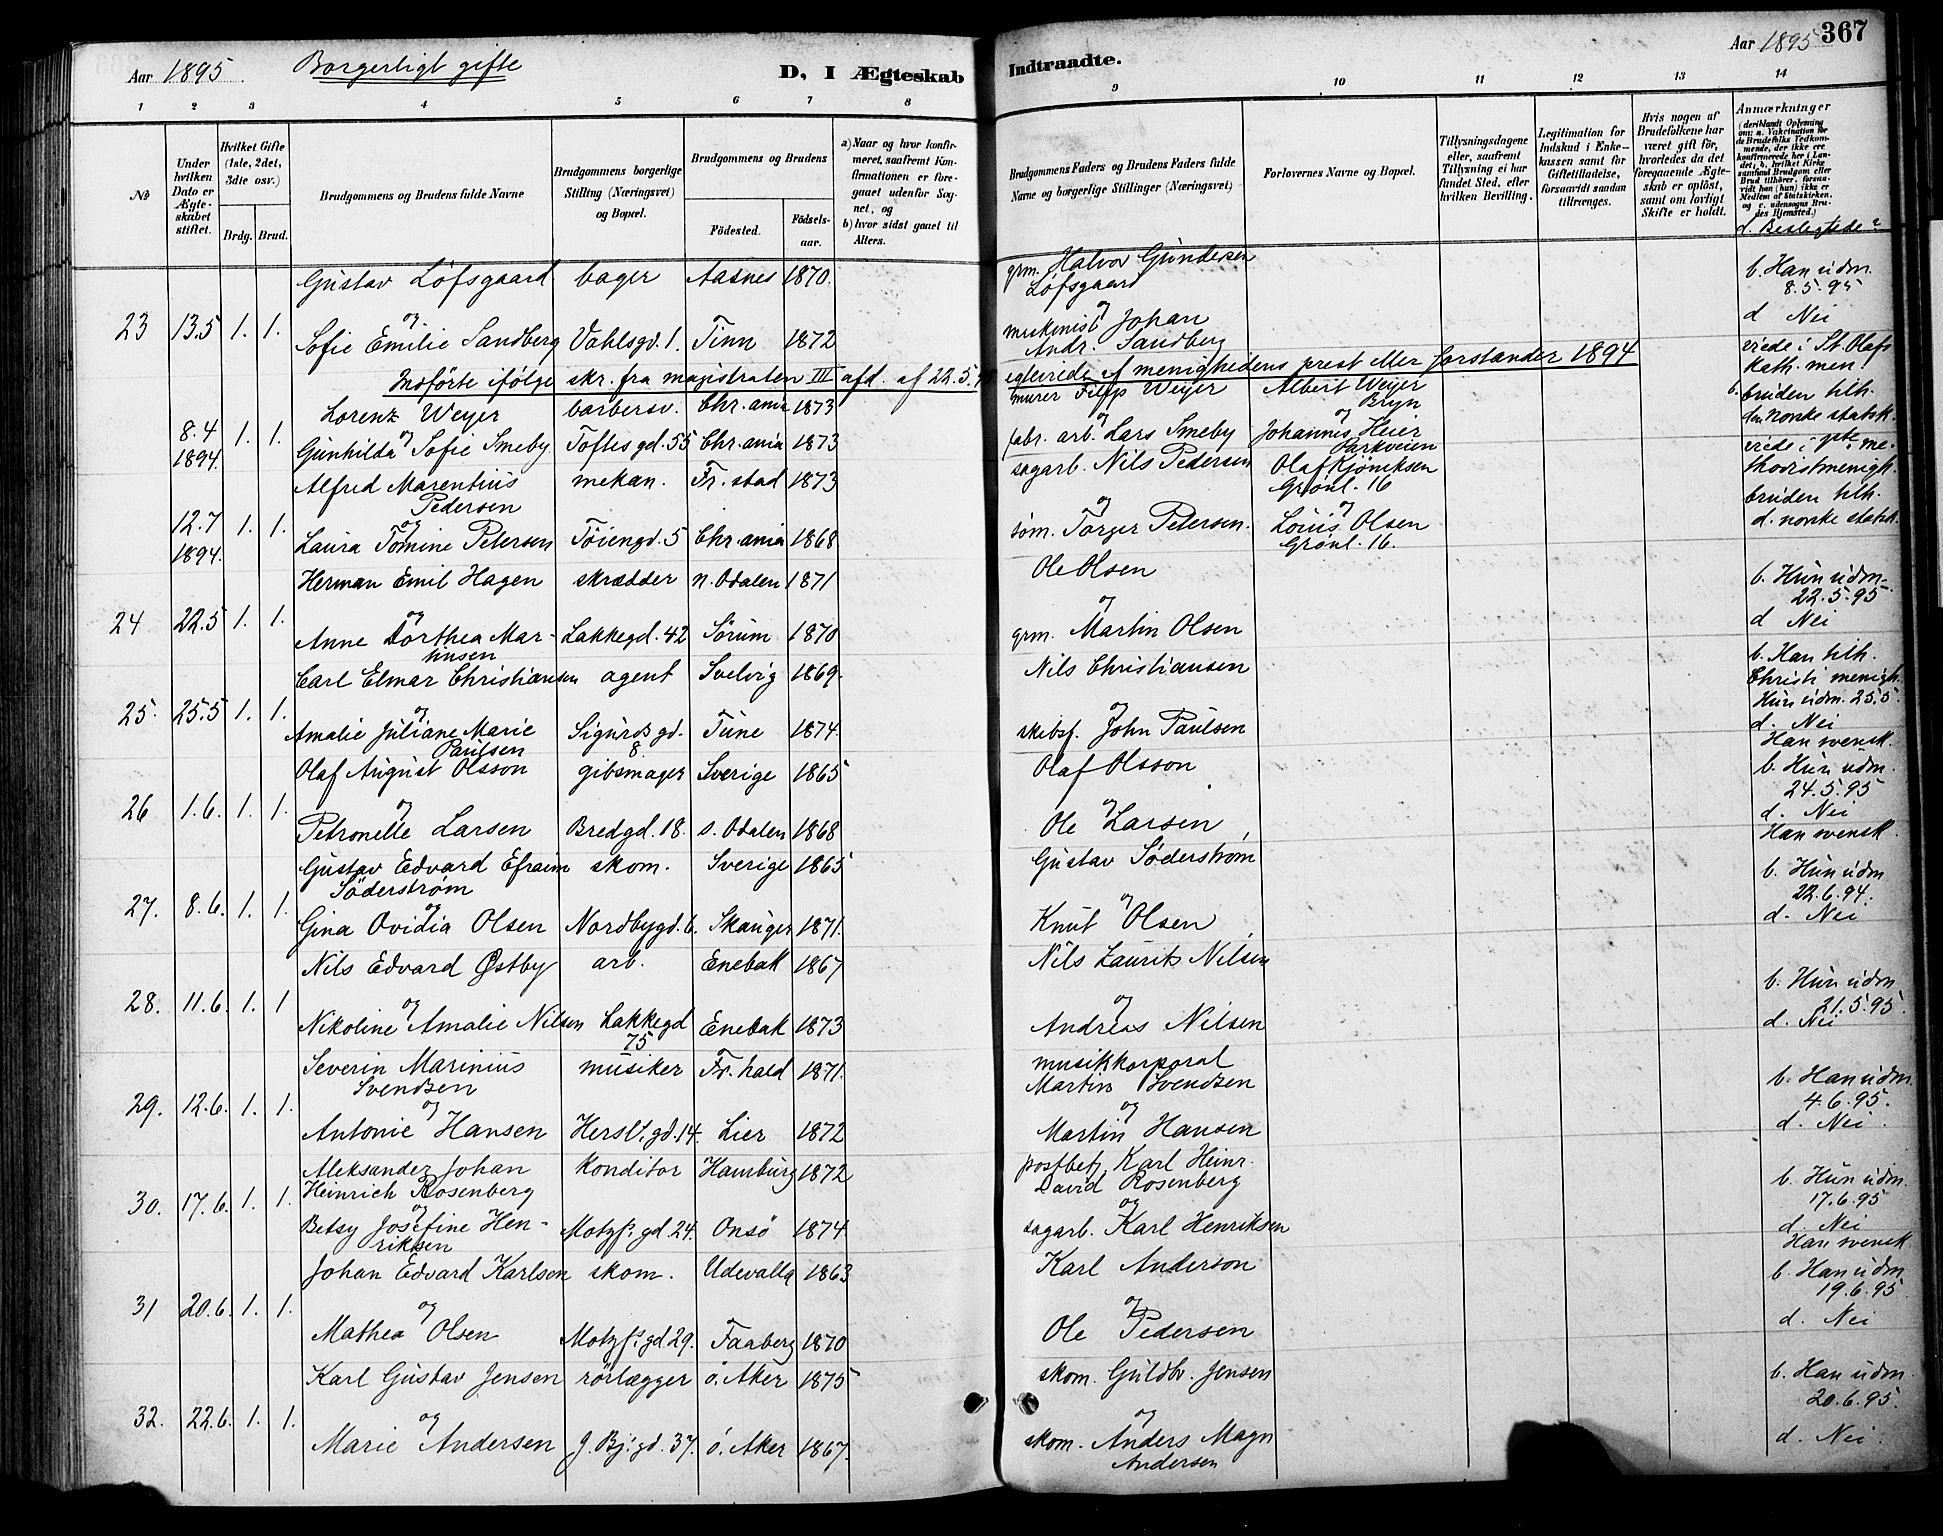 Aar 1895. Borgerligt gifte D, I Ægteskab Indtraadte. Aar 1895 367
1 2 3 4 5 6 7 8 9 10 11 12 13 14
№
Under hvilken Dato er Ægteskabet stiftet.
Hvilket Gifte (1ste, 2det, 3die osv.)
Brdg. Brud.
Brudgommens og Brudens fulde Navne
Brudgommens borgerlige Stilling (Næringsvei) og Bopæl.
Brudgommens og Brudens
Födested. Födselsaar.
a) Naar og hvor konfirmeret, saafremt Konfirmationen er foregaaet udenfor Sognet, og
b) hvor sidst gaaet til Alters.
Brudgommens Faders og Brudens Faders fulde Navne og borgerlige Stillinger (Næringsvei)
Forlovernes Navne og Bopæl.
Tillysningsdagene eller, saafremt Tillysning ei har fundet Sted, efter hvilken Bevilling.
Legitimation for Indskud i Enkekassen samt for Giftetilladelse, forsaavidt saadan tiltrænges.
Hvis nogen af Brudefolkene har været gift för, hvorledes da det foregaaende Ægteskab er oplöst, samt om lovligt Skifte er holdt.
Anmærkninger
(deriblandt Oplysning om: a. Vakcination for de Brudefolks Vedkommende, der ikke ere konfirmerede her i Landet; b. hvilket Kirkesamfund Brudgom eller Brud tilhörer, forsaavidt han (hun) ikke er Medlem af Statskirken, og c. udensogns Brudes Hjemsted.)
d. Beslegtede?
Gustav Løfsgaard bager Aasnes 1870. grm. Halvor Gundersen Løfsgaard b. Han udm. 8.5.95
23 13.5 1. 1. og og d Nei
Sofie Emilie Sandberg Vahlsgd. 1. Tinn 1872 mekenist Johan Andr. Sandberg
Indførte ifölge skr. fra magistraten III afd. af 22.5. egteviede af menighedens prest eller forstander 1894
Lorenz Weyer barbersv. Chr.ania 1873 murer Filip Weyer Albert Weyer Bryn viede i St. Olafs kath. men.
8.4 1894. 1. 1. og og og b. bruden tilh. den norske statsk.
Gunhilda Sofie Smeby Toftesgd. 55 Chr.ania 1873 fabr. arb. Lars Smeby Johannes Heier Parkveien
Alfred Marentius Pedersen mekan. Fr.stad 1873 sagarb. Nils Pedersen Olaf Kjömiksen Grönl. 16 viede i 1ste methodistmenigh.
12.7 1894. 1. 1. og og og bruden tilh. d. norske statsk.
Laura Tomine Petersen Töiengd. 5 Chr.ania 1868 töm. Torger Petersen. Louis Olsen Grönl. 16.
Herman Emil Hagen skrædder n. Odalen 1871 Ole Olsen b. Hun udm. 22.5.95
24 22.5 1. 1. og og d Nei
Anne Dorthea Martinsen Lakkegd. 42 Sörum 1870 grm. Martin Olsen
Carl Elmar Christiansen agent Svelvig 1869. Nils Christiansen b. Han tilh. Christi menigh.
25. 25.5 1. 1. og og Hun udm. 25.5
Amalie Juliane Marie Paulsen Sigurdsgd. 8 Tune 1874. skibsf. John Paulsen d. Nei
Olaf August Olsson gibsmager Sverige 1865 Olaf Olsson Han svensk.
26 1.6. 1. 1. og og b. Hun udm. 24.5.95
Petronelle Larsen Bredgd. 18. s. Odalen 1868 Ole Larsen d. Nei
Gustav Edvard Efraim Söderström skom. Sverige 1865 Gustav Söderström Han svensk.
27. 8.6. 1. 1. og og b. Hun udm 22.6.94.
Gina Ovidia Olsen Nordbygd. 6. Skauger 1871. Knut Olsen d. Nei
Nils Edvard Østby arb. Enebak 1867 Nils Laurits Nilsen
28. 11.6. 1. 1 og og b. Hun udm 21.5.95.
Nikoline Amalie Nilsen Lakkegd 75 Enebak 1873 Andreas Nilsen d. Nei
Severin Marinius Svendsen musiker Fr.hald 1871. musikkorporal Martin Svendsen
29. 12.6. 1. 1. og og b. Han udm. 4.6.95.
Antonie Hansen Hersl.gd. 14. Lier 1872 Martin Hansen d. Nei.
Aleksander Johan Heinrich Rosenberg konditor Hamburg 1872 postbetj. Karl Heinr. David Rosenberg
30. 17.6. 1. 1. og og b. Hun udm. 17.6.95
Betsy Josefine Henriksen Motzfs.gd. 24. Onsö 1874. sagarb. Karl Henriksen d. Nei
Johan Edvard Karlsen skom. Udevalla 1863 Karl Anderson Han svensk.
31 20.6. 1. 1. og og b. Han udm 19.6.95.
Mathea Olsen Motzfs.gd 29. Faaberg 1870 Ole Pedersen d. Nei
Karl Gustav Jensen rörlægger ö. Aker 1875 skom. Guldbr. Jensen b. Han udm. 20.6.95.
32. 22.6. 1. 1. og og
Marie Andersen J. Bj.gd. 37. ö. Aker 1867. skom. Anders Magn Andersen d. Nei.